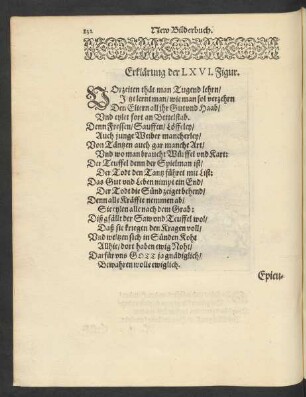 232. New Bilderbuch.
Erklärung der LXVI. Figur.
VOrzeiten thät man Tugend lehrn/
Jtzt lernt man/ wie man sol verzehrn
Den Eltern all jhr Gut vnd Haab/
Vnd eylet fort an Bettelstab.
Denn Fressen/ Sauffen/ Löffeley/
Auch junge Weiber mancherley/
Von Täntzen auch gar manche Art/
Vnd wo man braucht Würffel vnd Kart:
Der Teuffel denn der Spielman ist/
Der Todt den Tantz führet mit List:
Das Gut vnd Leben nimpt ein End/
Der Todt die Sünd zeiget behend/
Denn alle Kräffte nemmen ab/
Sie eylen alle nach dem Grab:
Diß gfällt der Saw vnd Teuffel wol/
Daß sie kriegen den Kragen voll/
Vnd weltzen sich in Sünden Koht
Allhie/ dort haben ewig Noht/
Darfür vns GOTT so gnädiglich/
Bewahren wolle ewiglich.
Epicu-